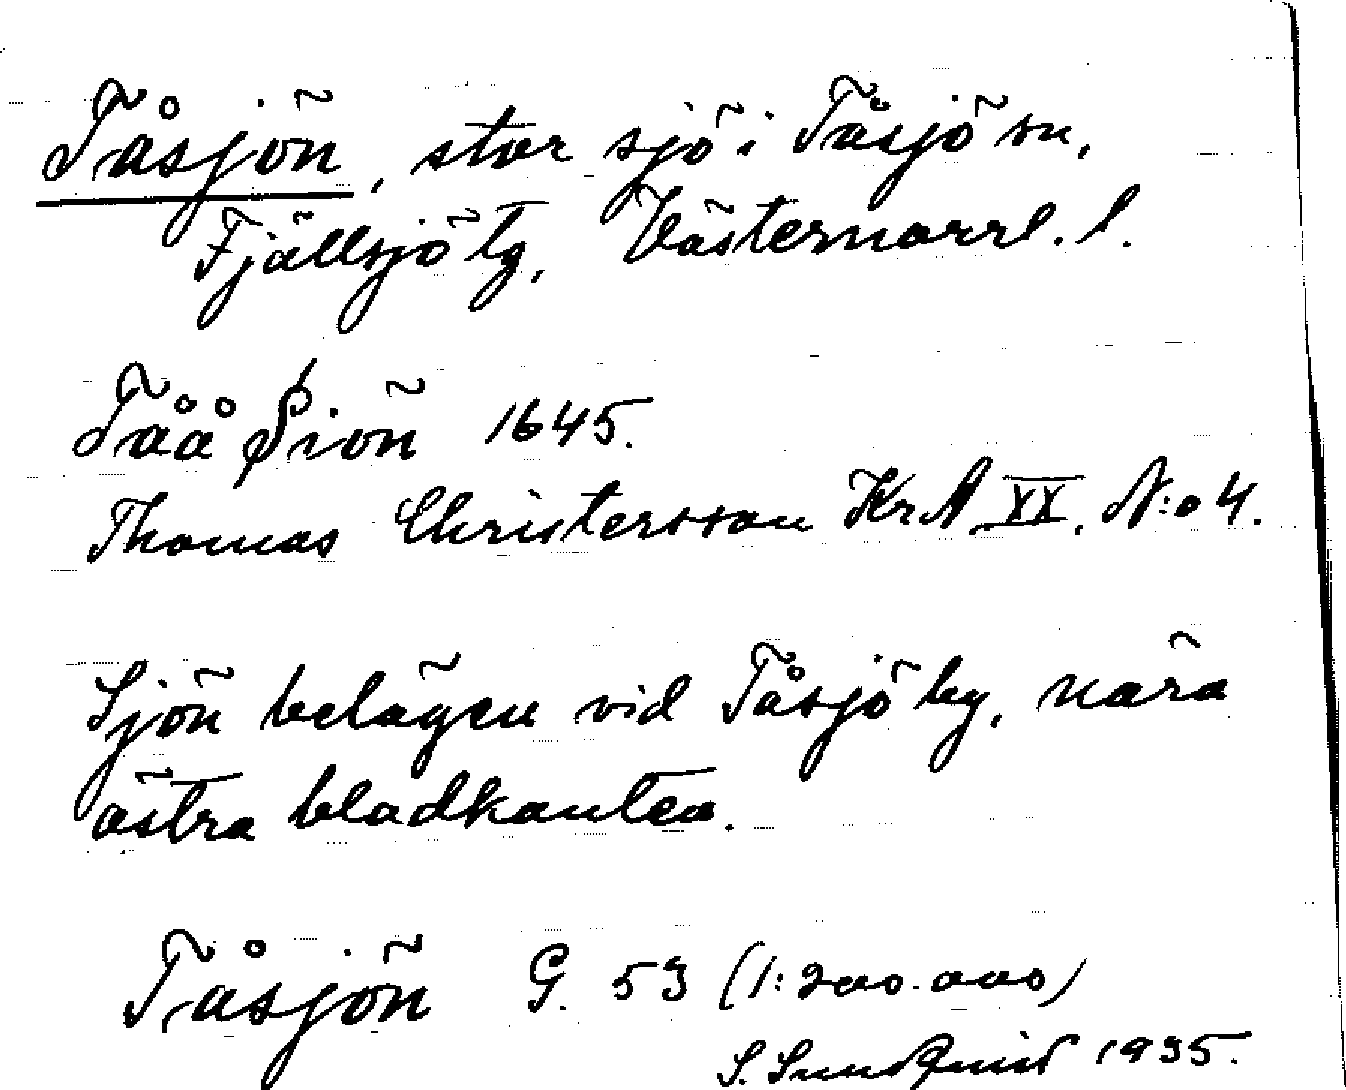 Tåsjön, stor sjö i Tåsjö sn,
Fjällsjö tg, Västernorrl. l.
Tåå Siön 1645.
Thomas Christersson KrA XX. N:o 4.
Sjön belägen vid Tåsjö by, nära
östra bladkanten.
Tåsjön G. 53 (1:200.000)
S. Sundquist 1935.